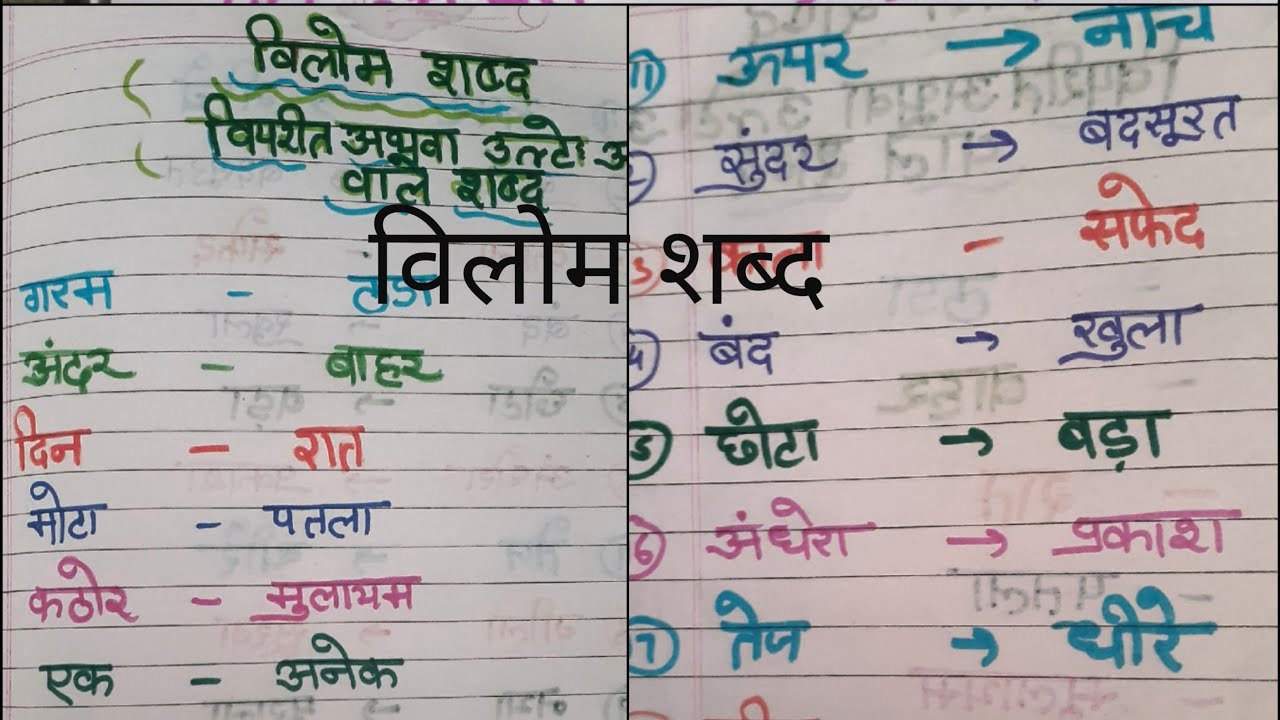 विलोम शब्द
विपरीत अथवा उल्टे अ
वाले शब्द
विलोम शब्द
गरम - ठंडा
अंदर - बाहर
दिन - रात
मोटा - पतला
कठोर - मुलायम
एक - अनेक
1) ऊपर → नीचे
2) सुंदर → बदसूरत
3) काला - सफेद
4) बंद → खुला
5) छोटा → बड़ा
6) अंधेरा → प्रकाश
7) तेज → धीरे